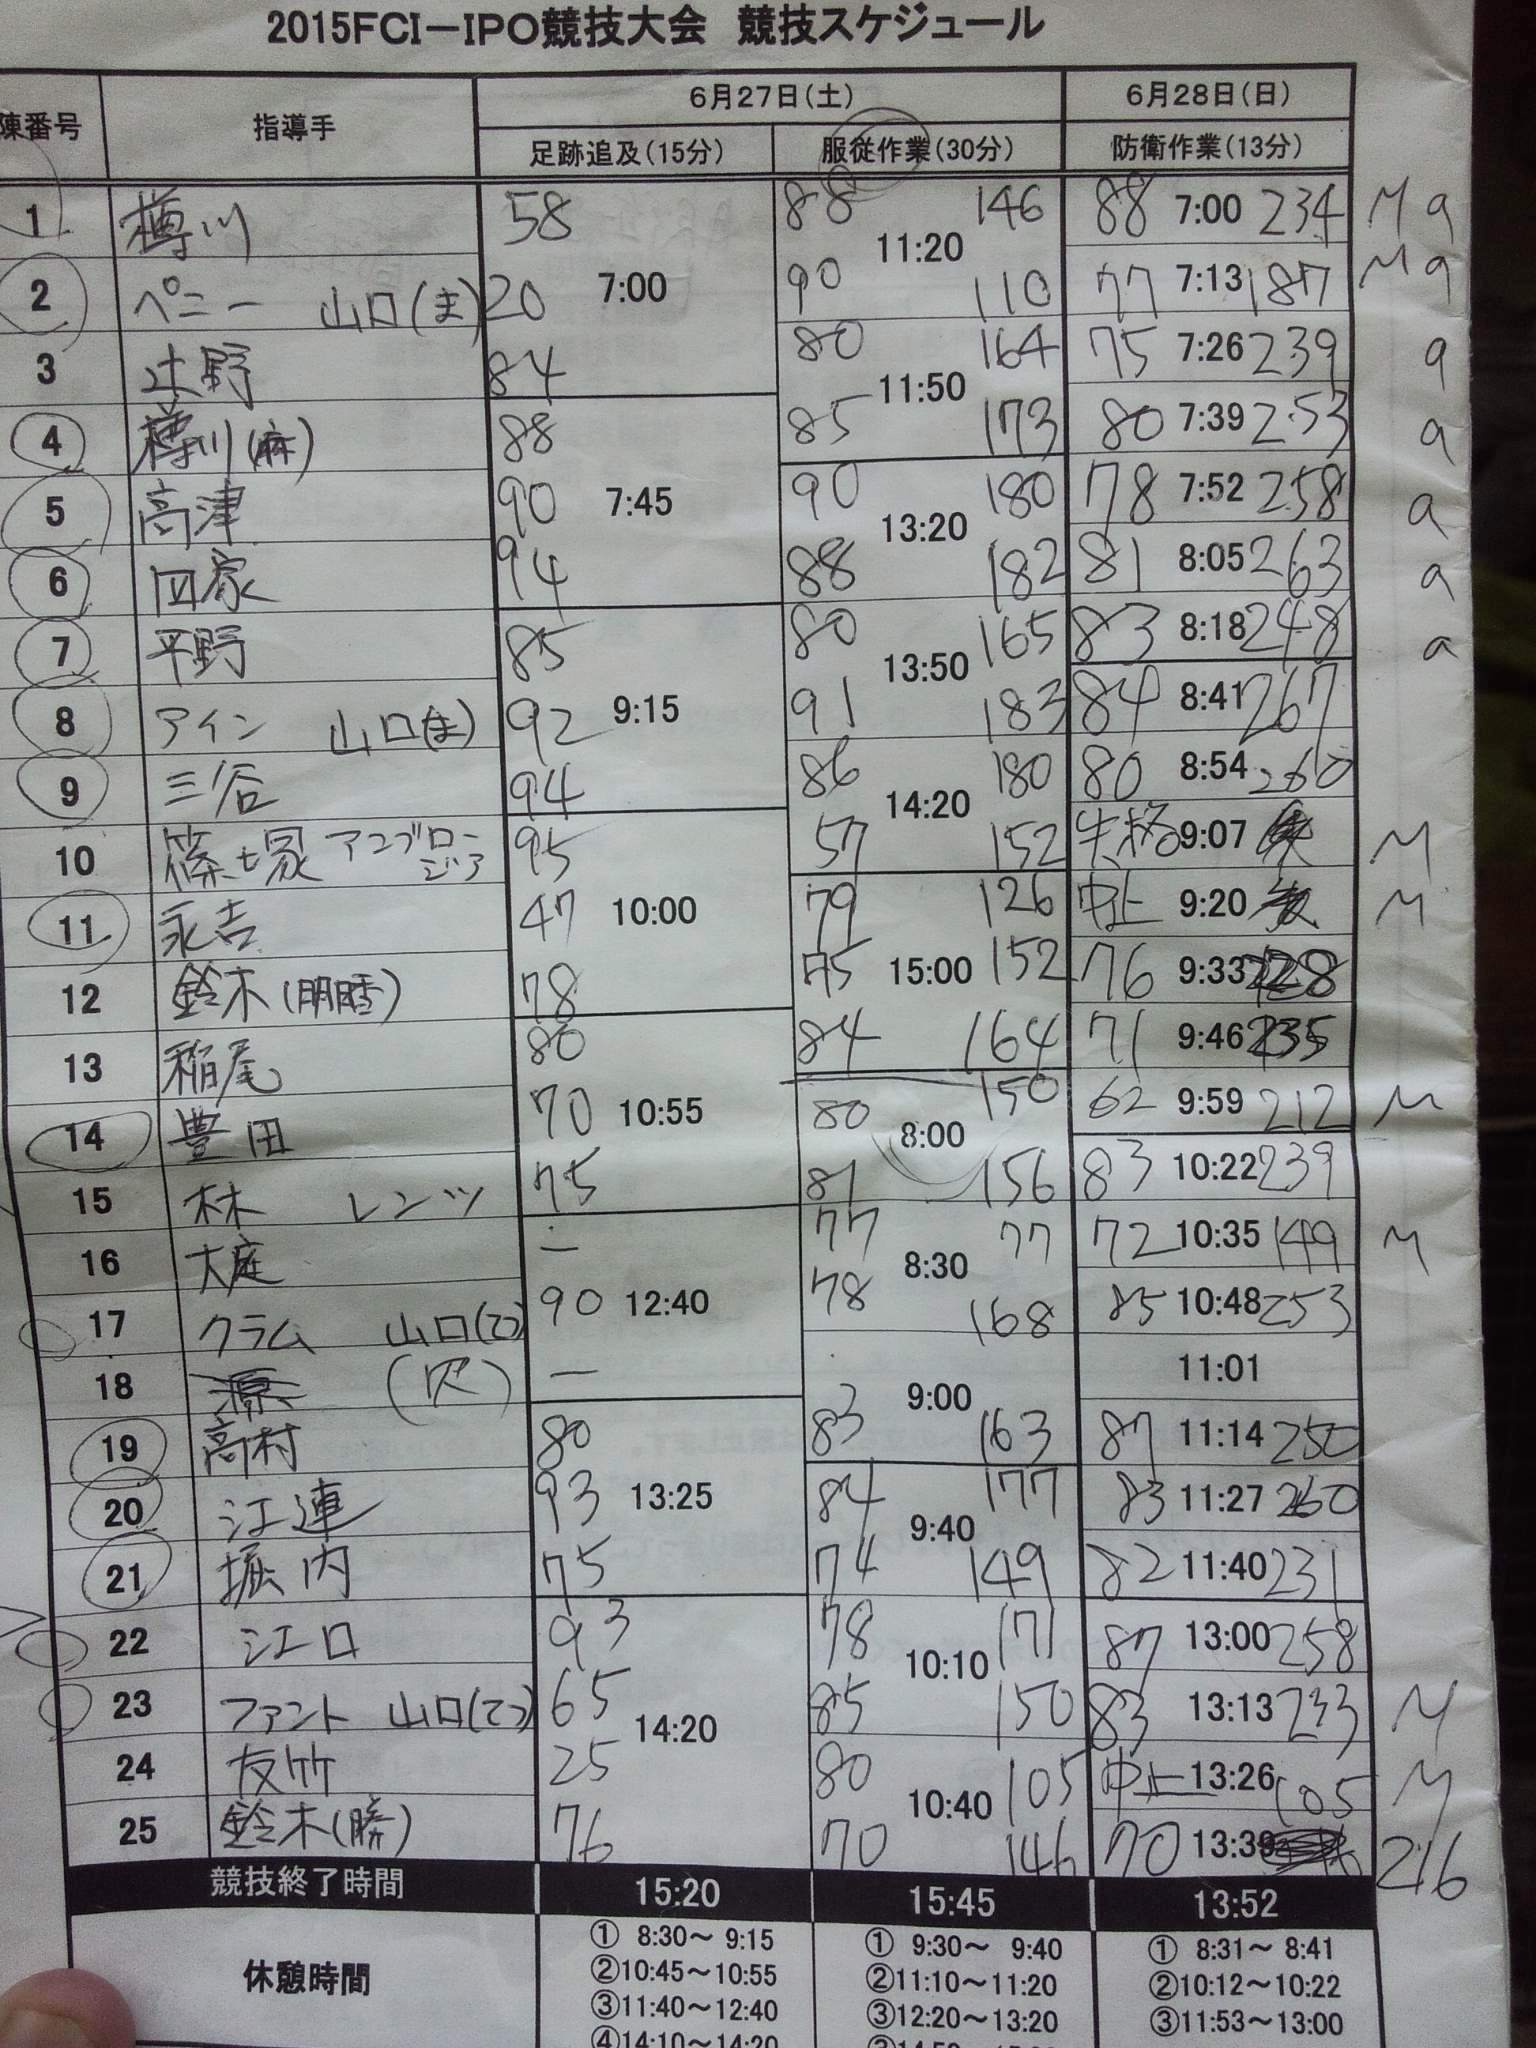 2015FCI－IPO競技大会　競技スケジュール
陳番号 指導手 6月27日(土) 6月28日(日)
足跡追及(15分) 服従作業(30分) 防衛作業(13分)
1 樽川 58 88 146 88 7:00 234 M a
7:00 11:20
2 ペニー 山口(ま) 20 90 110 77 7:13 187 M a
3 辻野 84 80 164 75 7:26 239 a
11:50
4 樽川(麻) 88 85 173 80 7:39 253 a
5 高津 90 7:45 90 180 78 7:52 258 a
13:20
6 四家 94 88 182 81 8:05 263 a
7 平野 85 80 165 83 8:18 248 a
13:50
8 アイン 山口(ま) 92 9:15 91 183 84 8:41 267
9 三谷 94 86 180 80 8:54 260
14:20
10 篠塚 アンブロージア 95 57 152 失格 9:07 M
11 永吉 47 10:00 79 126 中止 9:20 M
12 鈴木 78 75 15:00 152 76 9:33 228
13 稲尾 80 84 164 71 9:46 235
14 豊田 70 10:55 80 150 62 9:59 212 M
8:00
15 林 レンツ 75 81 156 83 10:22 239
16 大庭 － 77 77 72 10:35 149 M
8:30
17 クラム 山口(てつ) 90 12:40 78 168 85 10:48 253
18 源 (欠) － 11:01
9:00
19 高村 80 83 163 87 11:14 250
20 江連 93 13:25 84 177 83 11:27 260
9:40
21 堀内 75 74 149 82 11:40 231
22 江口 93 78 171 87 13:00 258
10:10
23 ファント 山口(てつ) 65 85 150 83 13:13 233 M
14:20
24 友竹 25 80 105 中止 13:26 105 M
10:40
25 鈴木(勝) 76 70 146 70 13:39 216
競技終了時間 15:20 15:45 13:52
休憩時間
① 8:30～ 9:15 ① 9:30～ 9:40 ① 8:31～ 8:41
②10:45～10:55 ②11:10～11:20 ②10:12～10:22
③11:40～12:40 ③12:20～13:20 ③11:53～13:00
④14:10～14:20